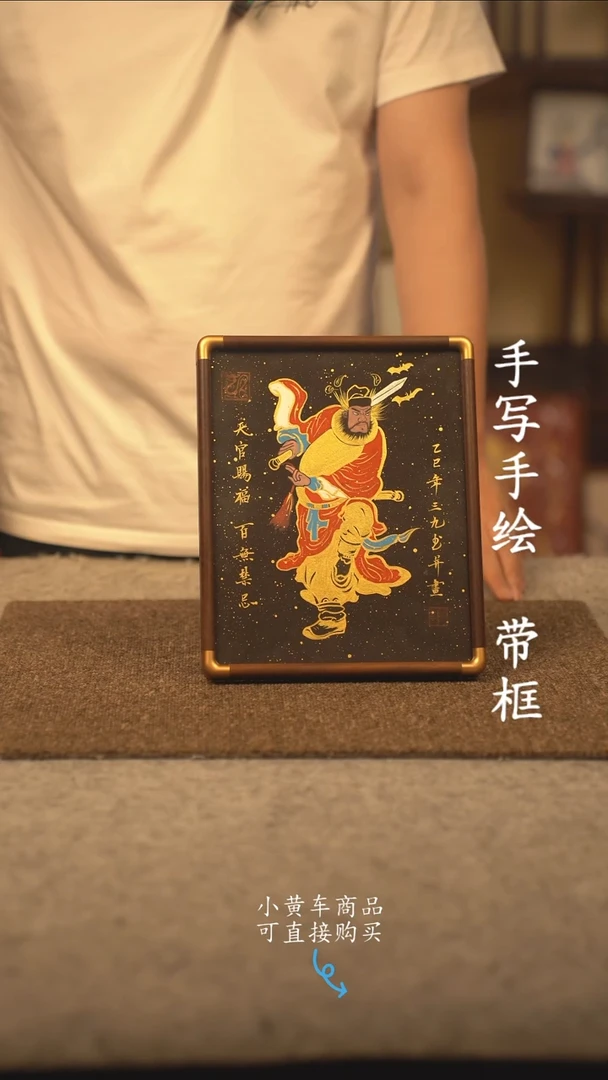 手写手绘 带框
天官賜福 百無禁忌
乙巳年三九書并畫
小黄车商品
可直接购买